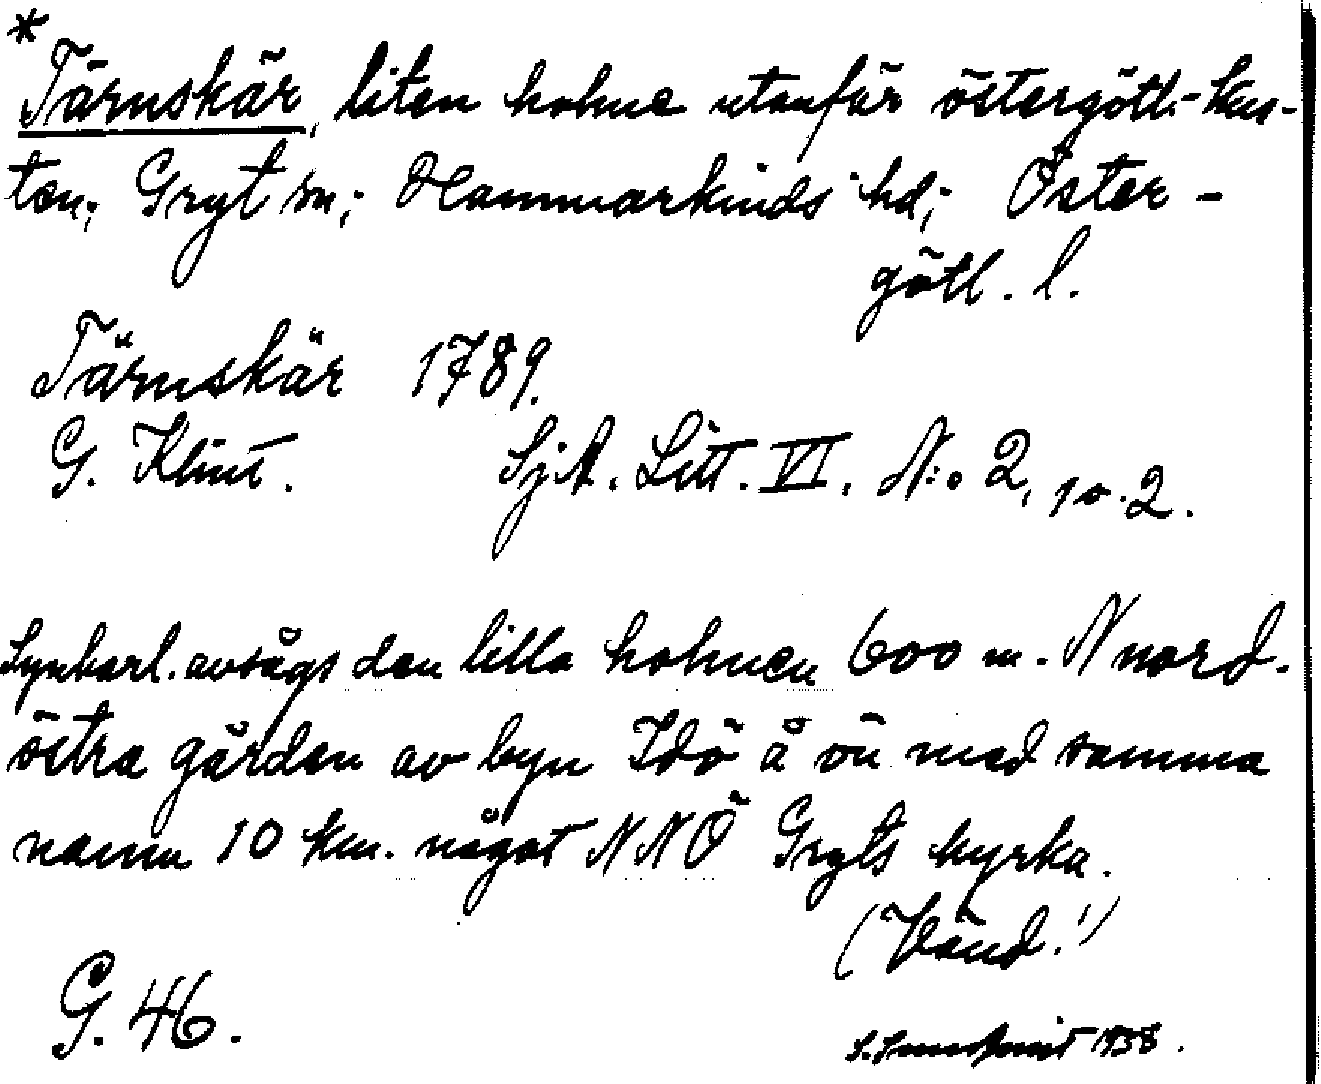 *
Tärnskär, liten holme utanför östergötl.-kus-
ten; Gryt sn; Hammarkinds hd; Öster-
götl. l.
Tärnskär 1789.
G. Klint. SjA. Litt. VI. N:o 2, 10.2.
Synbarl. avsågs den lilla holmen 600 m. N nord-
östra gården av byn Idö å ön med samma
namn 10 km. något NNÖ Gryts kyrka.
(Vänd!)
G. 46.
1938.